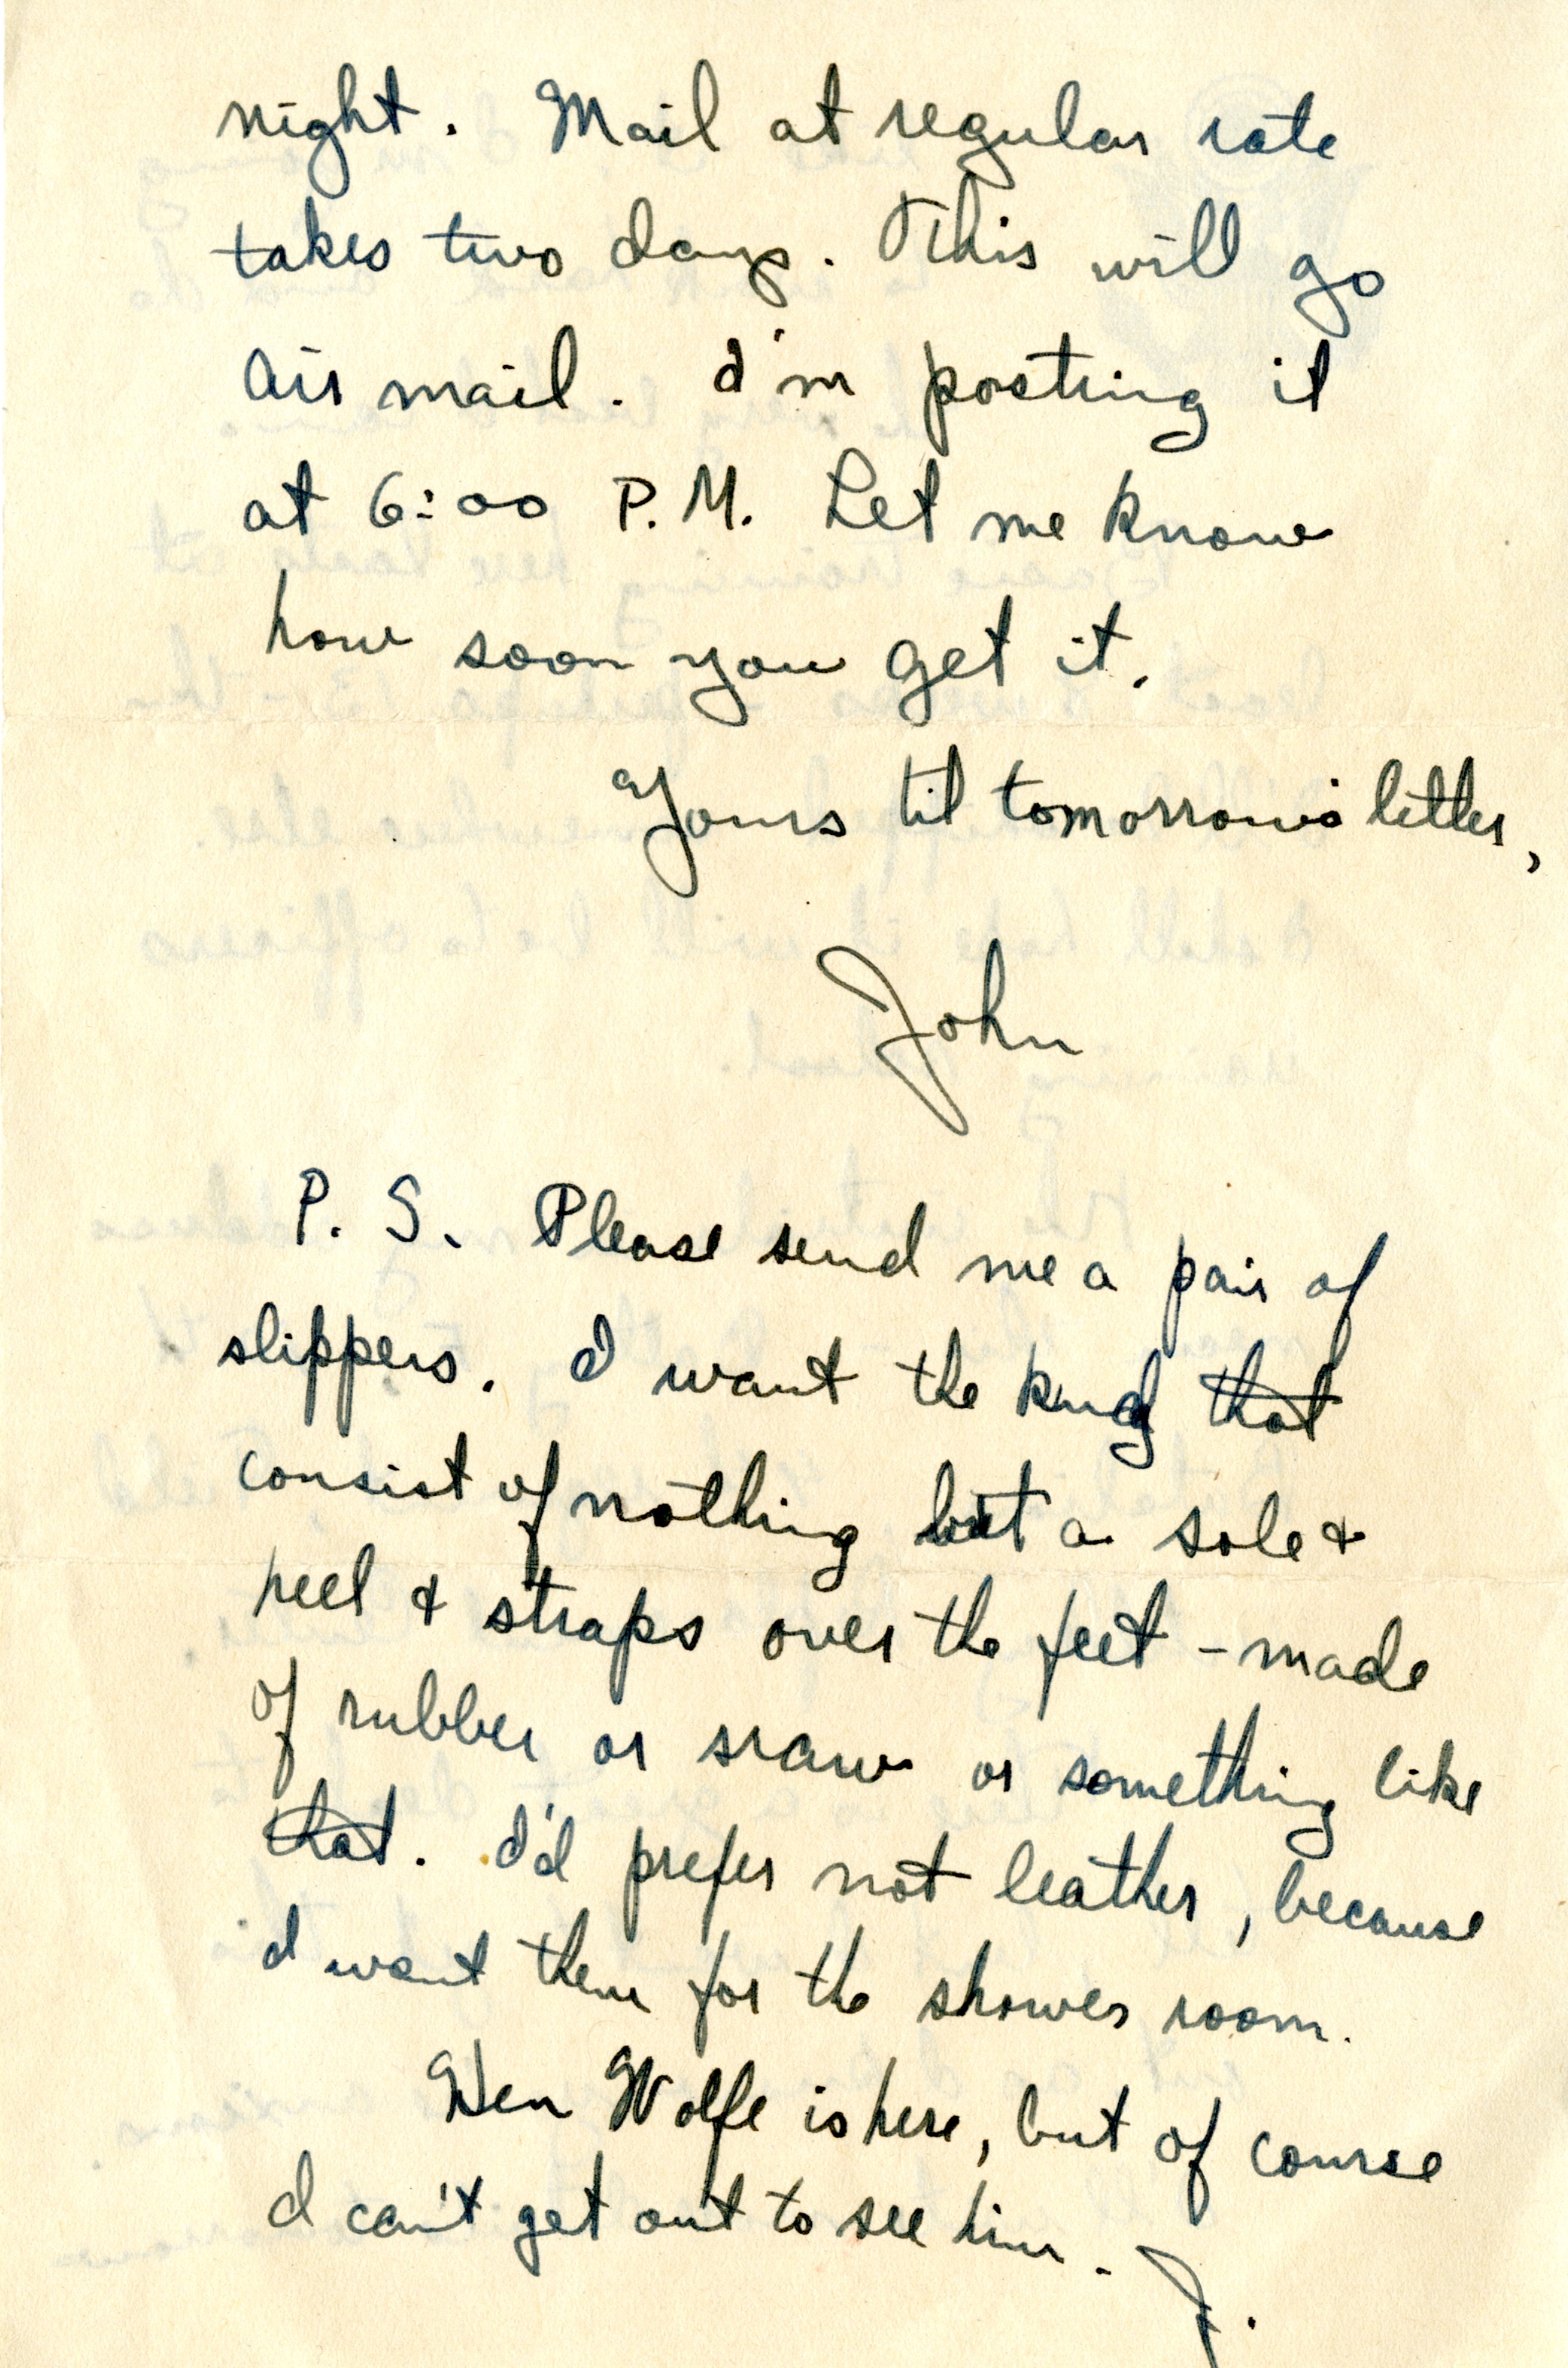 night. Mail at regular rate
takes two days. This will go
air mail. I'm posting it
at 6:00 P.M. Let me know
how soon you get it.
Yours til tomorrow's letter,
John
P. S. Please send me a pair of
slippers. I want the kind that
consist of nothing but a sole &
heel & straps over the feet - made
of rubber or sraw or something like
that. I'd prefer not leather, because
I want them for the shower room.
Hen Wolfe is here, but of course
I can't get out to see him. J.